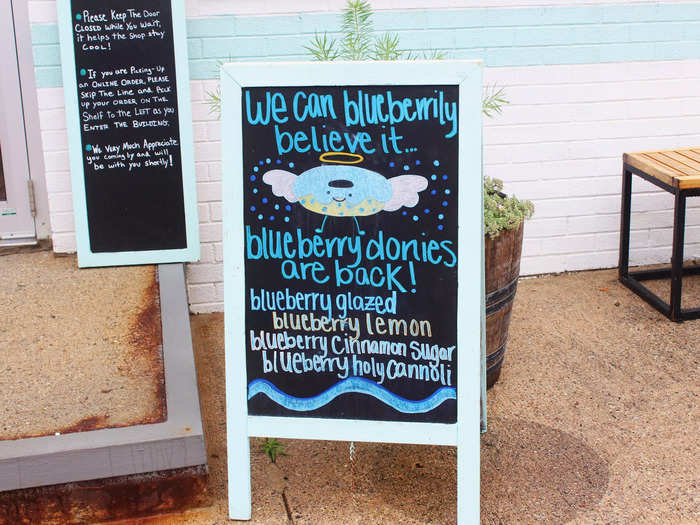 Please Keep The Door
Closed while You Wait,
it helps the Shop stay
Cool!
If you are Picking-Up
an Online Order, Please
Skip The Line and Pick
up your order on the
Shelf to the Left as you
Enter the Building.
We Very Much Appreciate
you coming by and will
be with you shortly!
We can blueberrily
believe it...
blueberry donies
are back!
blueberry glazed
blueberry lemon
blueberry cinnamon sugar
blueberry holy cannoli